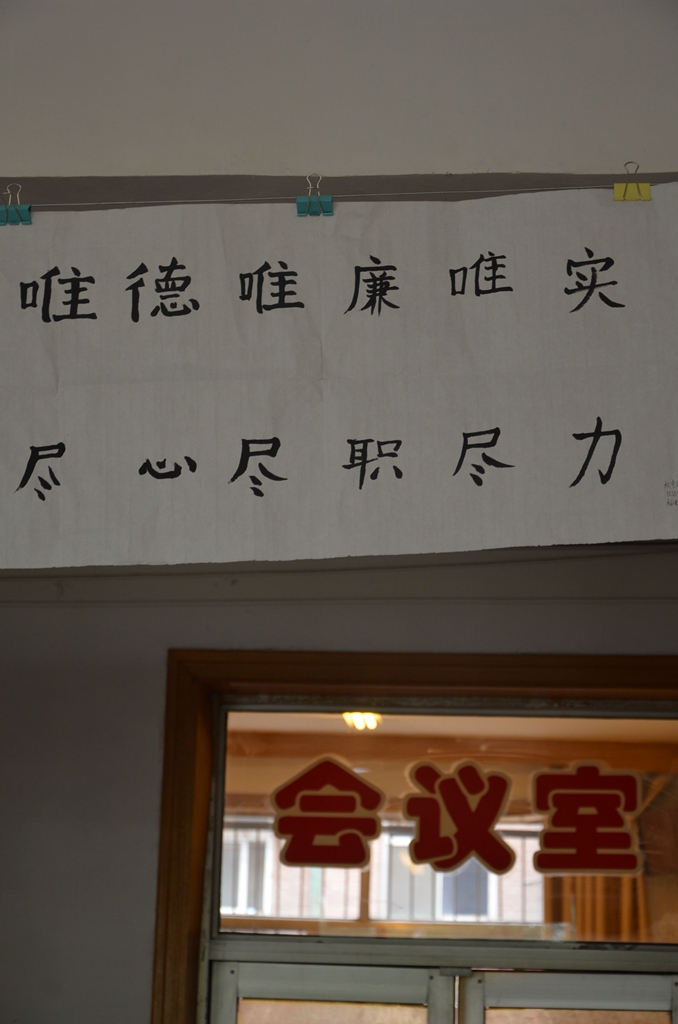 唯德唯廉唯实
尽心尽职尽力
会议室